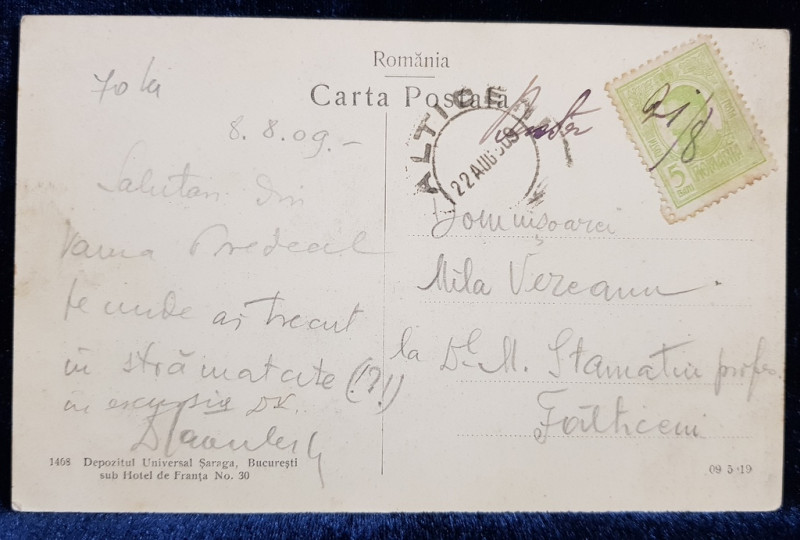 România
Carta Postala
70 lei
8.8.09.-
Salutari din
Vama Predeal
pe unde ai trecut
în străinatate (!?!)
în excursia
ALTICE
22 AUG 909
21/8
5
BANI
ROMANIA
Domnişoarei
Mila Vereanu.
la Dl. M. Stamatiu profes.
Fălticeni
1468 Depozitul Universal Şaraga, Bucureşti
sub Hotel de Franţa No. 30
09 5 19